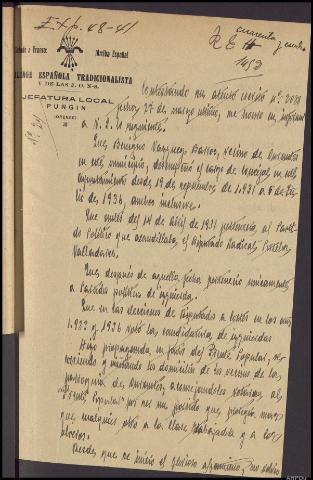 Exp. 48-41
cuarenta y cuatro
Saludo a Franco
Arriba España!
1453
FALANGE ESPAÑOLA TRADICIONALISTA
Y DE LAS J. O. N-S.
JEFATURA LOCAL
PUNGIN
(ORENSE)
Contestando su atento escrito nº
fecha 27 de marzo último, me honro en informar
a V. S. lo siguiente:
Que Benigno Vazquez Bassos, vecino de
en este municipio, desempeñó el cargo de concejal en este
Ayuntamiento desde 19 de septiembre de 1.931 a 8 de
de 1,936, ambos inclusive.
Que antes del 14 de Abril de 1931 pertenecía al Parti-
do Político que acaudillaba el Diputado Radical
Valladares.
Que, después de aquella fecha perteneció únicamente
a Partidos políticos de izquierda.
Que en las elecciones de Diputados a Cortes en los años
1.933 y 1936 votó las candidaturas de izquierdas
Hizo propaganda en favor del Frente Popular, re-
corriendo y visitando los domicilios de los vecinos de las
parroquias de aconsejándoles votasen al
"Frente Popular" por ser un partido que protegía mucho
que cualquier otro a la clase trabajadora y a los
obreros.
Desde que se inició el glorioso alzamiento, no